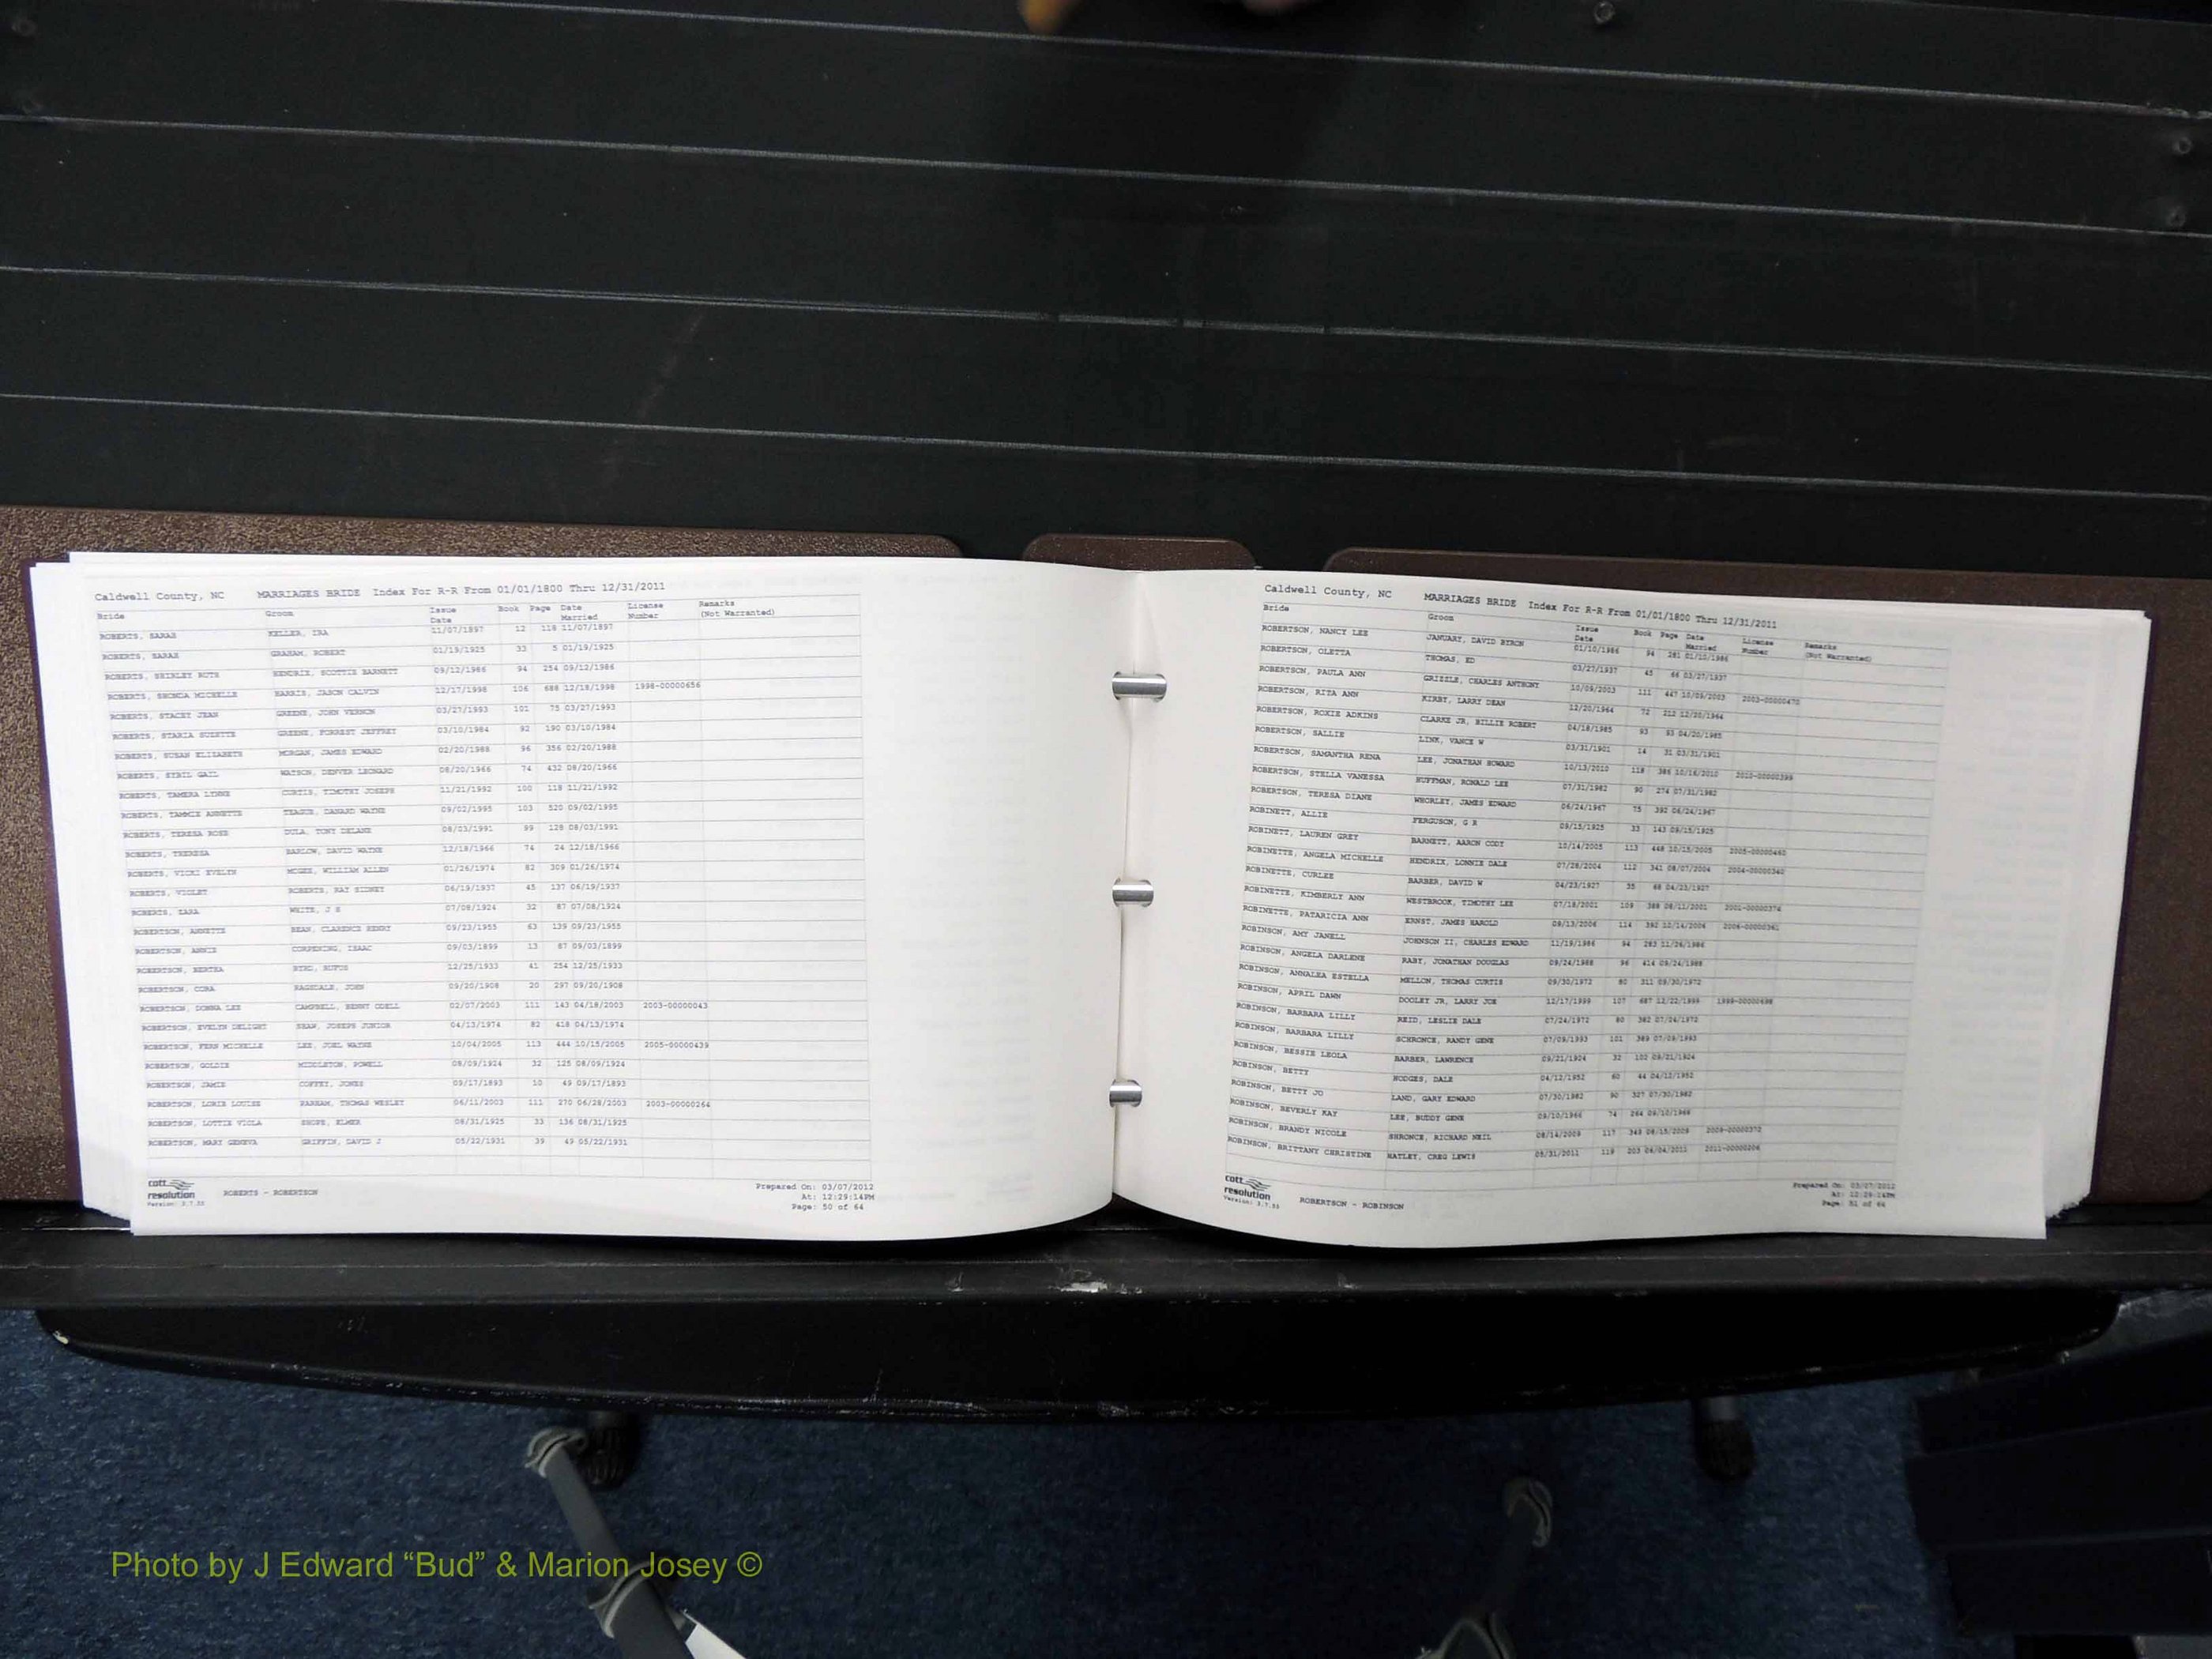 Caldwell County, NC MARRIAGES BRIDE Index For R-R From 01/01/1800 Thru 12/31/2011
Bride Groom Issue Date Book Page Date Married License Number Remarks (Not Warranted)
ROBERTS, SARAH KELLER, IRA 11/07/1897 12 118 11/07/1897
ROBERTS, SARAH GRAHAM, ROBERT 01/19/1925 33 5 01/19/1925
ROBERTS, SHIRLEY RUTH HENDRIX, SCOTTIE BARNETT 09/12/1986 94 254 09/12/1986
ROBERTS, SHONDA MICHELLE HARRIS, JASON CALVIN 12/17/1998 106 688 12/18/1998 1998-00000656
ROBERTS, STACEY JEAN GREENE, JOHN VERNON 03/27/1993 101 75 03/27/1993
ROBERTS, STARIA SUZETTE GREENE, FORREST JEFFREY 03/10/1984 92 190 03/10/1984
ROBERTS, SUSAN ELIZABETH MORGAN, JAMES EDWARD 02/20/1988 96 356 02/20/1988
ROBERTS, SYBIL GAIL WATSON, DENVER LEONARD 08/20/1966 74 432 08/20/1966
ROBERTS, TAMERA LYNNE CURTIS, TIMOTHY JOSEPH 11/21/1992 100 118 11/21/1992
ROBERTS, TAMMIE ANNETTE TEAGUE, DANARD WAYNE 09/02/1995 103 520 09/02/1995
ROBERTS, TERESA ROSE DULA, TONY DELANE 08/03/1991 99 128 08/03/1991
ROBERTS, THERESA BARLOW, DAVID WAYNE 12/18/1966 74 24 12/18/1966
ROBERTS, VICKI EVELYN MCGEE, WILLIAM ALLEN 01/26/1974 82 309 01/26/1974
ROBERTS, VIOLET ROBERTS, RAY SIDNEY 06/19/1937 45 137 06/19/1937
ROBERTS, ZARA WHITE, J S 07/08/1924 32 87 07/08/1924
ROBERTSON, ANNETTE BEAN, CLARENCE HENRY 09/23/1955 63 139 09/23/1955
ROBERTSON, ANNIE CORPENING, ISAAC 09/03/1899 13 87 09/03/1899
ROBERTSON, BERTHA BYRD, RUFUS 12/25/1933 41 254 12/25/1933
ROBERTSON, CORA RAGSDALE, JOHN 09/20/1908 20 297 09/20/1908
ROBERTSON, DONNA LEE CAMPBELL, BENNY ODELL 02/07/2003 111 143 04/18/2003 2003-00000043
ROBERTSON, EVELYN DELIGHT SEAW, JOSEPH JUNIOR 04/13/1974 82 418 04/13/1974
ROBERTSON, FERN MICHELLE LEE, JOEL WAYNE 10/04/2005 113 444 10/15/2005 2005-00000439
ROBERTSON, GOLDIE MIDDLETON, POWELL 08/09/1924 32 125 08/09/1924
ROBERTSON, JAMIE COFFEY, JONES 09/17/1893 10 49 09/17/1893
ROBERTSON, LORIE LOUISE PARHAM, THOMAS WESLEY 06/11/2003 111 270 06/28/2003 2003-00000264
ROBERTSON, LOTTIE VIOLA SHOPE, ELMER 08/31/1925 33 136 08/31/1925
ROBERTSON, MARY GENEVA GRIFFIN, DAVID J 05/22/1931 39 49 05/22/1931
cott resolution
Version: 3.7.33
ROBERTS - ROBERTSON
Prepared On: 03/07/2012
At: 12:29:14PM
Page: 50 of 64
Caldwell County, NC MARRIAGES BRIDE Index For R-R From 01/01/1800 Thru 12/31/2011
Bride Groom Issue Date Book Page Date Married License Number Remarks (Not Warranted)
ROBERTSON, NANCY LEE JANUARY, DAVID BYRON 01/10/1986 94 281 01/10/1986
ROBERTSON, OLETTA THOMAS, ED 03/27/1937 45 66 03/27/1937
ROBERTSON, PAULA ANN GRIZZLE, CHARLES ANTHONY 10/09/2003 111 447 10/09/2003 2003-00000470
ROBERTSON, RITA ANN KIRBY, LARRY DEAN 12/20/1964 72 212 12/20/1964
ROBERTSON, ROXIE ADKINS CLARKE JR, BILLIE ROBERT 04/18/1985 93 93 04/20/1985
ROBERTSON, SALLIE LINK, VANCE W 03/31/1901 14 31 03/31/1901
ROBERTSON, SAMANTHA RENA LEE, JONATHAN HOWARD 10/13/2010 118 386 10/16/2010 2010-00000399
ROBERTSON, STELLA VANESSA HUFFMAN, RONALD LEE 07/31/1982 90 274 07/31/1982
ROBERTSON, TERESA DIANE WHORLEY, JAMES EDWARD 06/24/1967 75 392 06/24/1967
ROBINETT, ALLIE FERGUSON, G R 09/15/1925 33 143 09/15/1925
ROBINETT, LAUREN GREY BARNETT, AARON CODY 10/14/2005 113 448 10/15/2005 2005-00000460
ROBINETTE, ANGELA MICHELLE HENDRIX, LONNIE DALE 07/28/2004 112 341 08/07/2004 2004-00000340
ROBINETTE, CURLEE BARBER, DAVID W 04/23/1927 35 68 04/23/1927
ROBINETTE, KIMBERLY ANN WESTBROOK, TIMOTHY LEE 07/18/2001 109 388 08/11/2001 2001-00000374
ROBINETTE, PATARICIA ANN ERNST, JAMES HAROLD 09/13/2006 114 392 10/14/2006 2006-00000361
ROBINSON, AMY JANELL JOHNSON II, CHARLES EDWARD 11/19/1986 94 283 11/26/1986
ROBINSON, ANGELA DARLENE RABY, JONATHAN DOUGLAS 09/24/1988 96 414 09/24/1988
ROBINSON, ANNALEA ESTELLA MELLON, THOMAS CURTIS 09/30/1972 80 311 09/30/1972
ROBINSON, APRIL DAWN DOOLEY JR, LARRY JOE 12/17/1999 107 687 12/22/1999 1999-00000698
ROBINSON, BARBARA LILLY REID, LESLIE DALE 07/24/1972 80 382 07/24/1972
ROBINSON, BARBARA LILLY SCHRONCE, RANDY GENE 07/09/1993 101 389 07/09/1993
ROBINSON, BESSIE LEOLA BARBER, LAWRENCE 09/21/1924 32 102 09/21/1924
ROBINSON, BETTY HODGES, DALE 04/12/1952 60 44 04/12/1952
ROBINSON, BETTY JO LAND, GARY EDWARD 07/30/1982 90 327 07/30/1982
ROBINSON, BEVERLY KAY LEE, BUDDY GENE 09/10/1966 74 264 09/10/1966
ROBINSON, BRANDY NICOLE SHRONCE, RICHARD NEIL 08/14/2009 117 349 08/15/2009 2009-00000372
ROBINSON, BRITTANY CHRISTINE HATLEY, CREG LEWIS 05/31/2011 119 203 06/04/2011 2011-00000206
cott resolution
Version: 3.7.33
ROBERTSON - ROBINSON
Prepared On: 03/07/2012
At: 12:29:14PM
Page: 51 of 64
Photo by J Edward “Bud” & Marion Josey ©